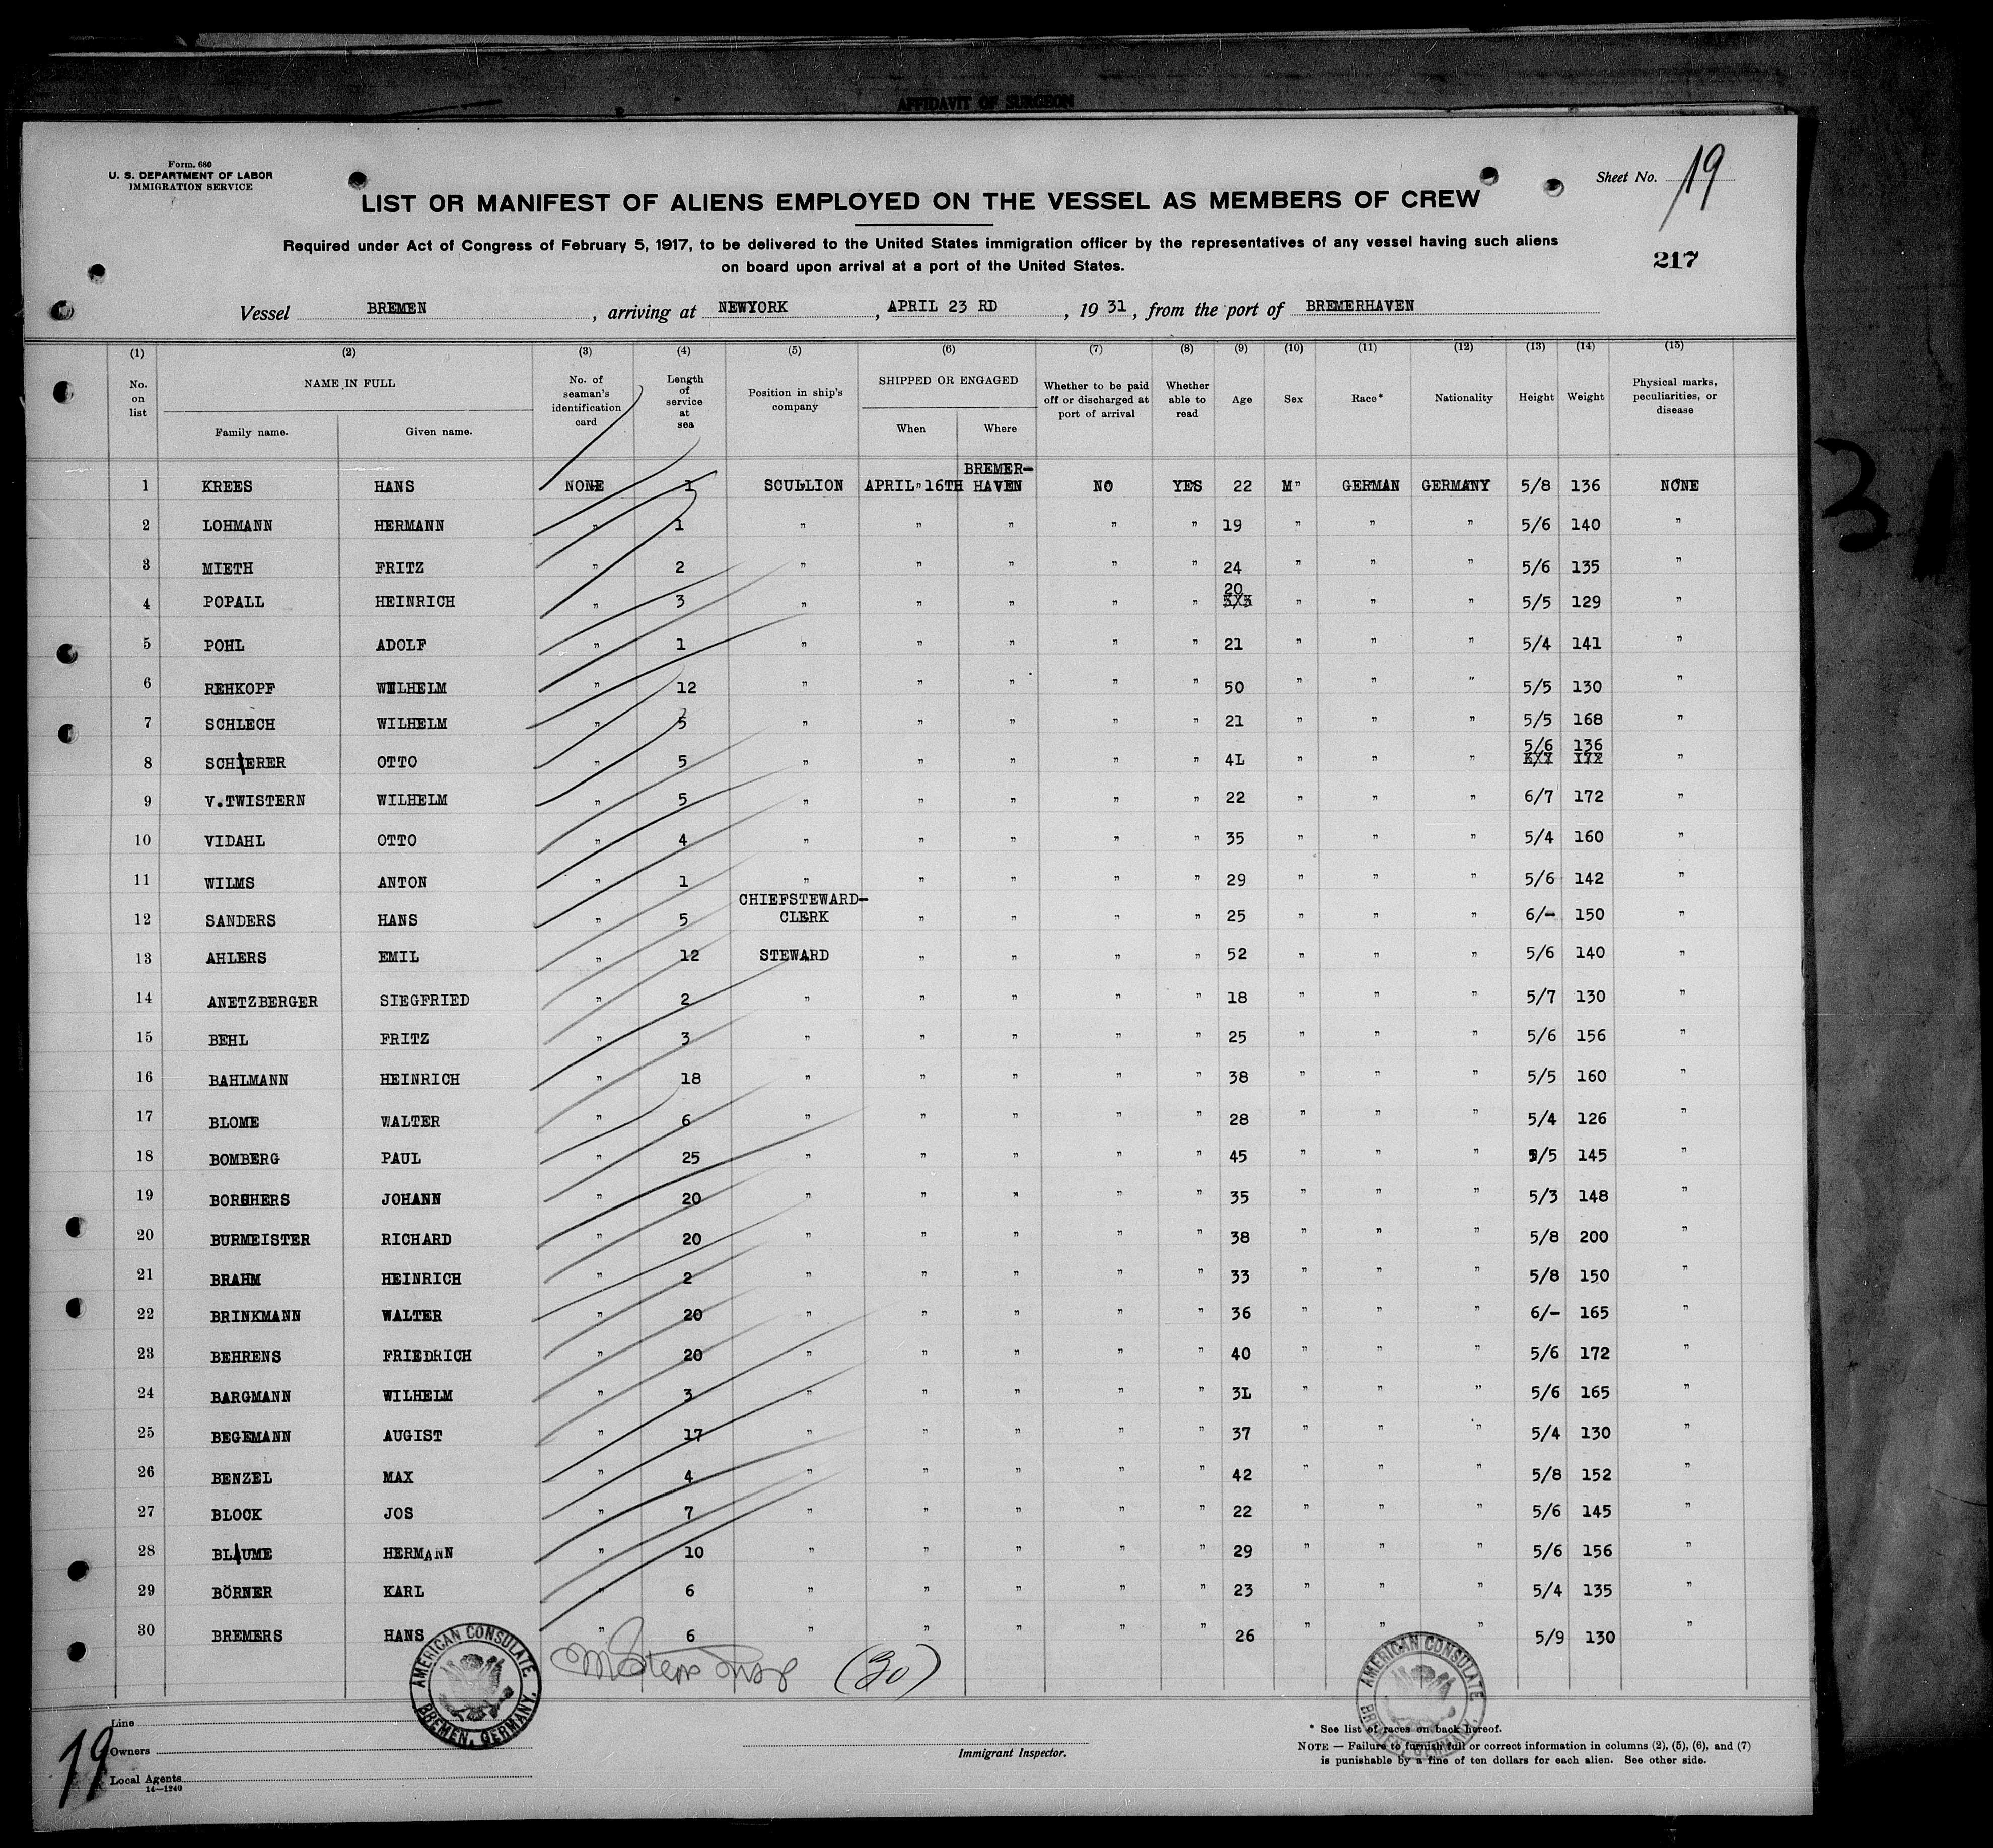 AFFIDAVIT OF SURGEON
Form. 680
U. S. DEPARTMENT OF LABOR
IMMIGRATION SERVICE
Sheet No. 19
LIST OR MANIFEST OF ALIENS EMPLOYED ON THE VESSEL AS MEMBERS OF CREW
Required under Act of Congress of February 5, 1917, to be delivered to the United States immigration officer by the representatives of any vessel having such aliens
on board upon arrival at a port of the United States.
217
Vessel BREMEN , arriving at NEWYORK , APRIL 23 RD , 19 31, from the port of BREMERHAVEN
(1) (2) (3) (4) (5) (6) (7) (8) (9) (10) (11) (12) (13) (14) (15)
No. on list NAME IN FULL Family name. Given name. No. of seaman's identification card Length of service at sea Position in ship's company SHIPPED OR ENGAGED When Where Whether to be paid off or discharged at port of arrival Whether able to read Age Sex Race* Nationality Height Weight Physical marks, peculiarities, or disease
1 KREES HANS NONE 1 SCULLION APRIL"16TH BREMER-HAVEN NO YES 22 M" GERMAN GERMANY 5/8 136 NONE
2 LOHMANN HERMANN " 1 " " " " " 19 " " " 5/6 140 "
3 MIETH FRITZ " 2 " " " " " 24 " " " 5/6 135 "
4 POPALL HEINRICH " 3 " " " " " 20 " " " 5/5 129 "
5 POHL ADOLF " 1 " " " " " 21 " " " 5/4 141 "
6 REHKOPF WILHELM " 12 " " " " " 50 " " " 5/5 130 "
7 SCHLECH WILHELM " 5 " " " " " 21 " " " 5/5 168 "
8 SCHIERER OTTO " 5 " " " " " 4L " " " 5/6 136 "
9 V.TWISTERN WILHELM " 5 " " " " " 22 " " " 6/7 172 "
10 VIDAHL OTTO " 4 " " " " " 35 " " " 5/4 160 "
11 WILMS ANTON " 1 " " " " " 29 " " " 5/6 142 "
12 SANDERS HANS " 5 CHIEFSTEWARD-CLERK " " " " 25 " " " 6/- 150 "
13 AHLERS EMIL " 12 STEWARD " " " " 52 " " " 5/6 140 "
14 ANETZBERGER SIEGFRIED " 2 " " " " " 18 " " " 5/7 130 "
15 BEHL FRITZ " 3 " " " " " 25 " " " 5/6 156 "
16 BAHLMANN HEINRICH " 18 " " " " " 38 " " " 5/5 160 "
17 BLOME WALTER " 6 " " " " " 28 " " " 5/4 126 "
18 BOMBERG PAUL " 25 " " " " " 45 " " " 5/5 145 "
19 BORCHERS JOHANN " 20 " " " " " 35 " " " 5/3 148 "
20 BURMEISTER RICHARD " 20 " " " " " 38 " " " 5/8 200 "
21 BRAHM HEINRICH " 2 " " " " " 33 " " " 5/8 150 "
22 BRINKMANN WALTER " 20 " " " " " 36 " " " 6/- 165 "
23 BEHRENS FRIEDRICH " 20 " " " " " 40 " " " 5/6 172 "
24 BARGMANN WILHELM " 3 " " " " " 3L " " " 5/6 165 "
25 BEGEMANN AUGIST " 17 " " " " " 37 " " " 5/4 130 "
26 BENZEL MAX " 4 " " " " " 42 " " " 5/8 152 "
27 BLOCK JOS " 7 " " " " " 22 " " " 5/6 145 "
28 BLAUME HERMANN " 10 " " " " " 29 " " " 5/6 156 "
29 BÖRNER KARL " 6 " " " " " 23 " " " 5/4 135 "
30 BREMERS HANS " 6 " " " " " 26 " " " 5/9 130 "
(30)
AMERICAN CONSULATE BREMEN, GERMANY.
AMERICAN CONSULATE BREMEN, GERMANY.
19
Line
Owners
Local Agents
14—1240
Immigrant Inspector.
* See list of races on back hereof.
NOTE — Failure to furnish full or correct information in columns (2), (5), (6), and (7)
is punishable by a fine of ten dollars for each alien. See other side.
31